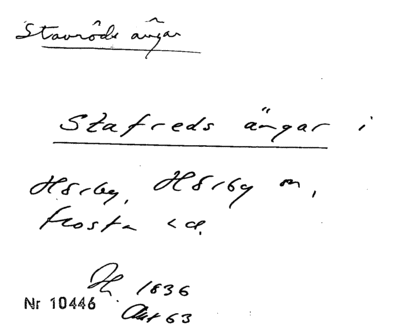 Stavrôds ängar
Stafreds ängar i
Hörby, Hörby sn,
Frosta hd.
1836
Nr 10446 Akt 63